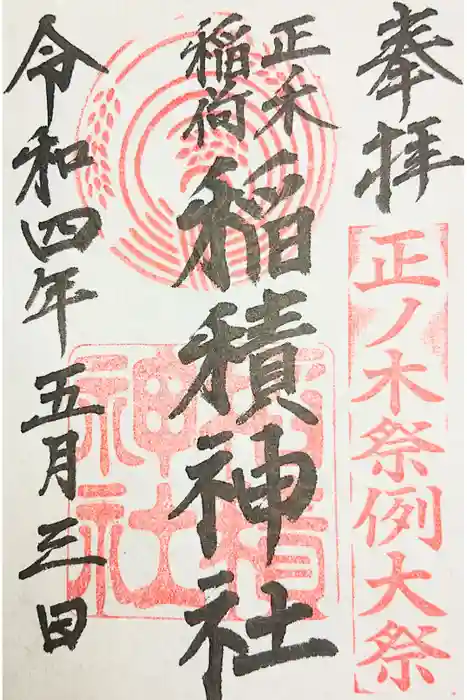 奉拝
正ノ木祭例大祭
正木
稲荷
稲積神社
稲積神社
令和四年五月三日